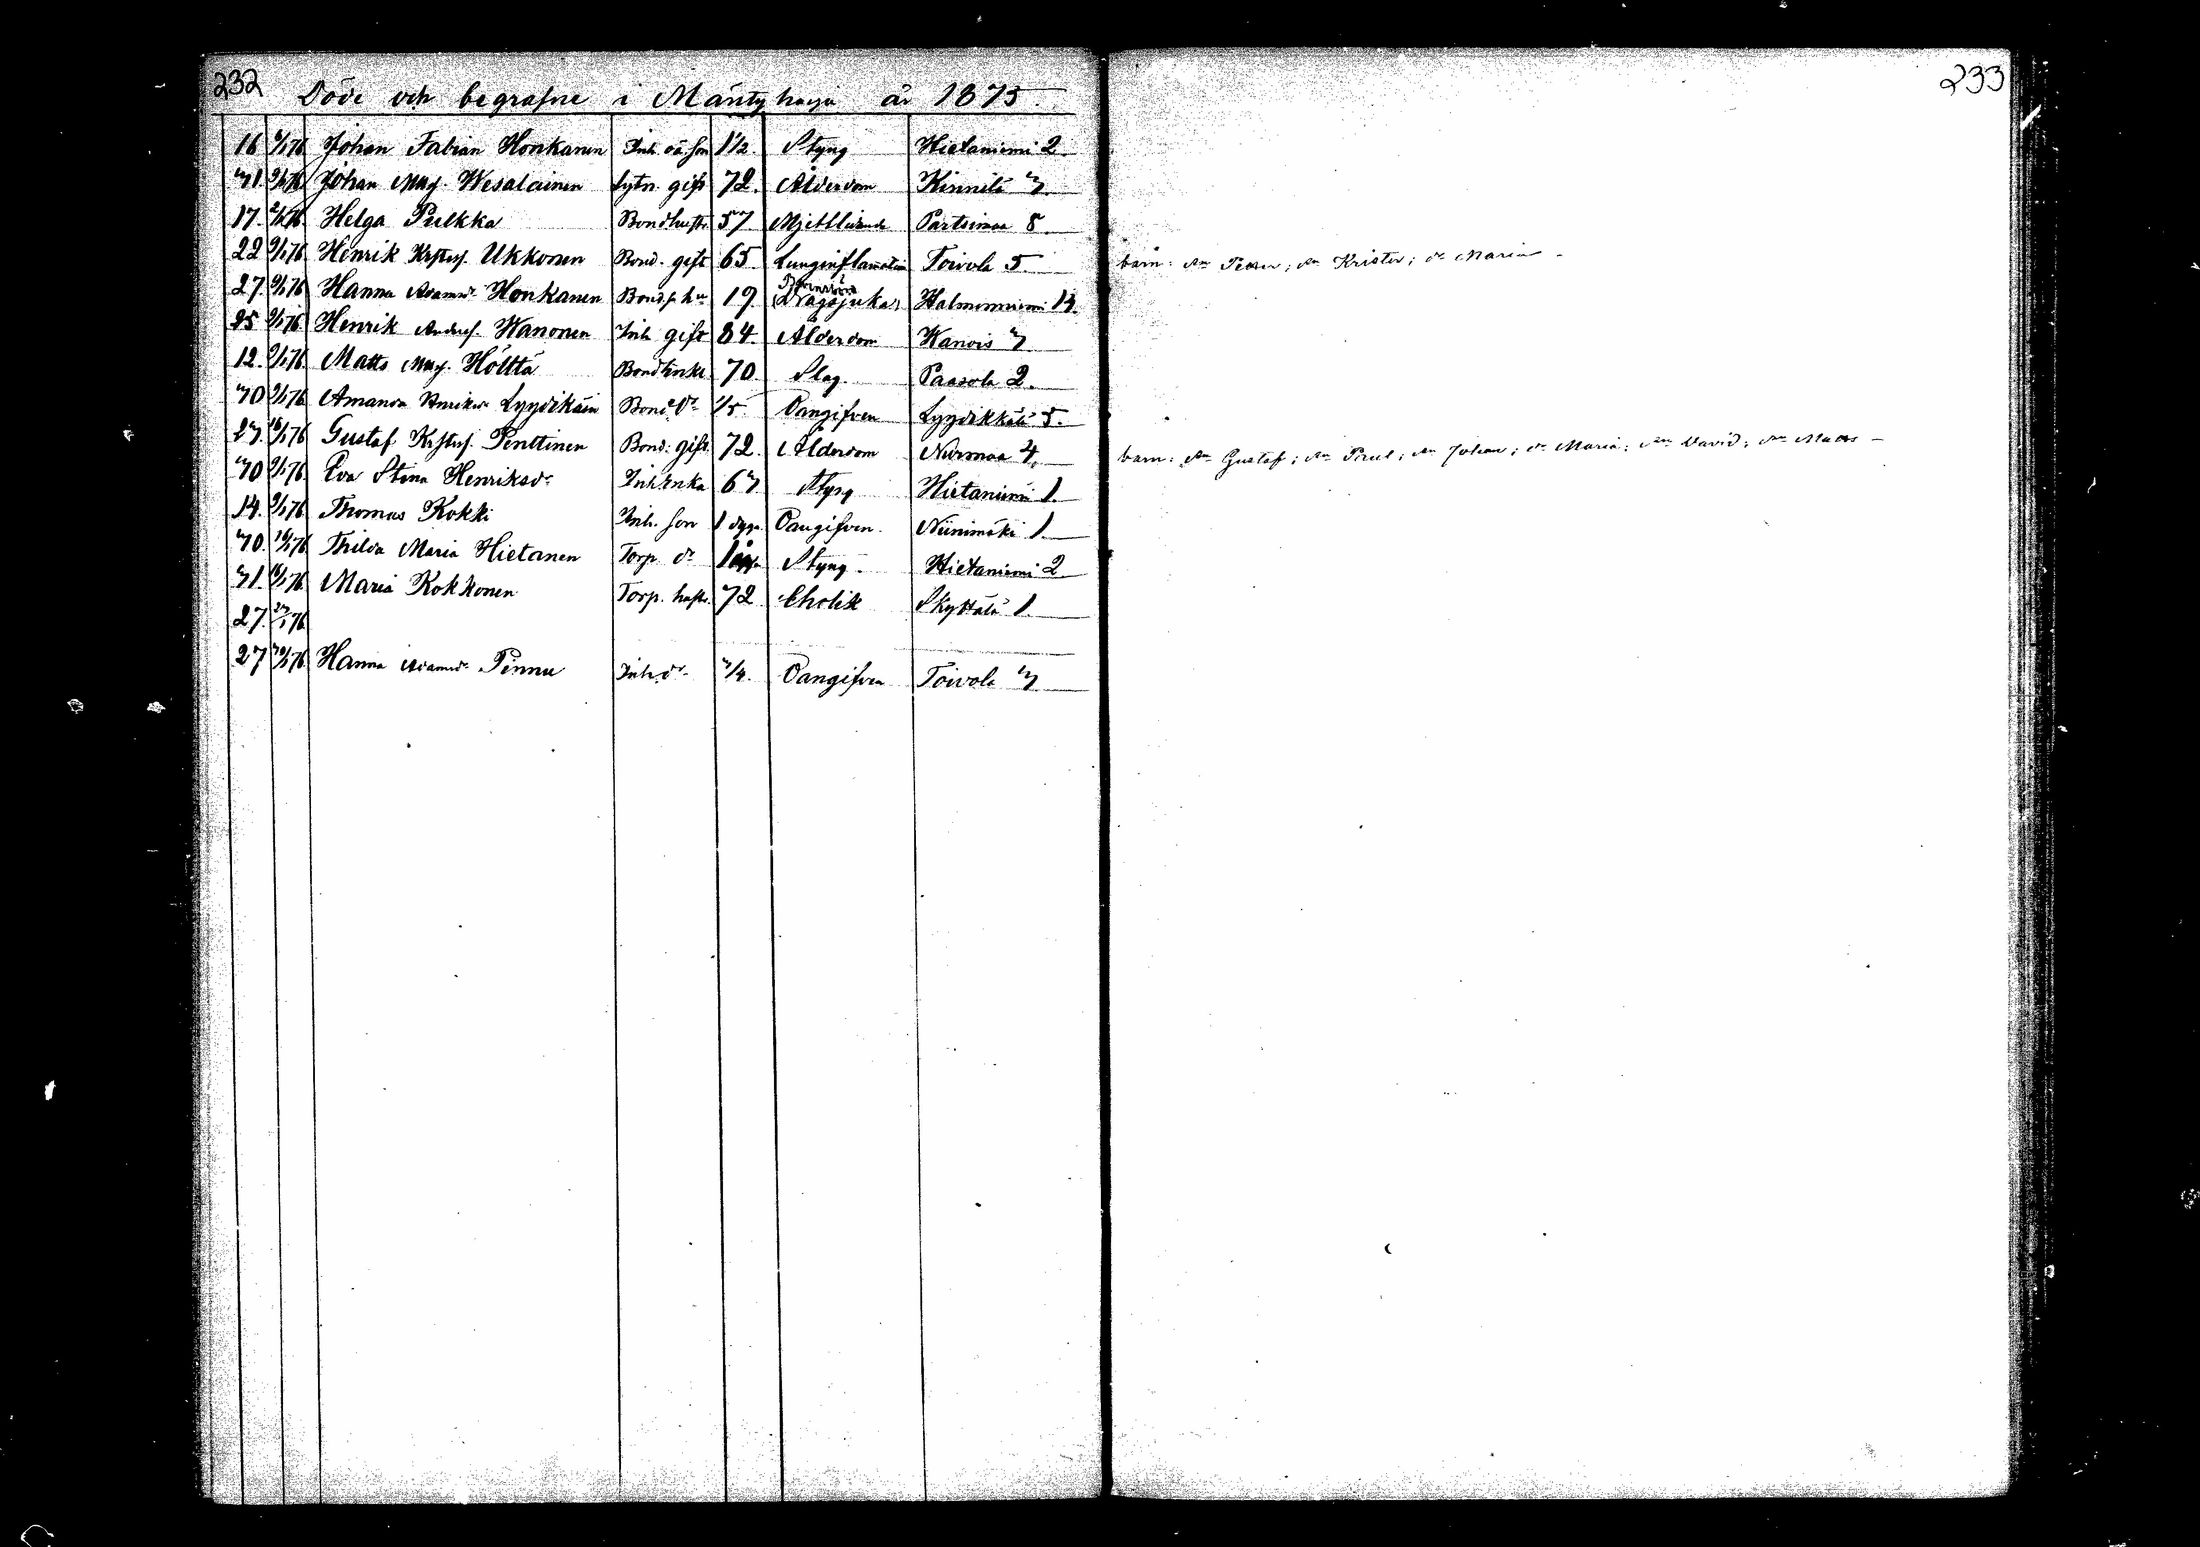 232
Döde och begrafne i Mäntyharju år 1875.
16 9/1 76 Johan Fabian Honkanen Inh. oä. son 1 1/2 Styng Hietaniemi 2
31. 9/1 76 Johan Wesalainen Sytn. gift 72. Ålderdom Kinnilä 3
17. 2/1 76 Helga Pulkka Bondhustr. 57 Partsimaa 8
22 9/1 76 Henrik Krsters. Ukkonen Bond. gift 65 Lunginflamation Toivola 5.
27. 9/1 76 Hanna Adamsdr Honkanen Bond. hu 19. Barnsbörd (Dragsjuka) Halmeniemi 14.
25 9/1 76 Henrik Anders. Wanonen Inh. gift 84. Ålderdom Wanois 3
12. 9/1 76 Matts Hölttä Bond Enkl. 70 Slag. Paasola 2.
30 9/1 76 Amanda Henriksdr Lyydikäin Bond. dr 1/5. Oangifven Lyydikkälä 5.
27. 16/1 76 Gustaf Krsters. Penttinen Bond. gift 72. Ålderdom Nurmaa 4.
30 9/1 76 Eva Stina Henriksdr Inh. Enka 63 Styng Hietaniemi 1.
14. 9/1 76 Thomas Kokki Inh. son 1 dygn Oangifven. Niinimäki 1.
30. 16/1 76 Thilda Maria Hietanen Torp. dr 1 år Styng. Hietaniemi 2
31. 16/1 76 Maria Kokkonen Torp. hustr. 72 Cholik Skyttälä 1.
27. 23/1 76
27 30/1 76 Hanna Adamsdr Pinnu Inh. dr 3/4. Oangifven Toivola 3
233
barn: Sn Petter; Sn Krister; dr Maria –
barn: Sn Gustaf; Sn Paul; Sn Johan; dr Maria; Sn David; Sn Matts –